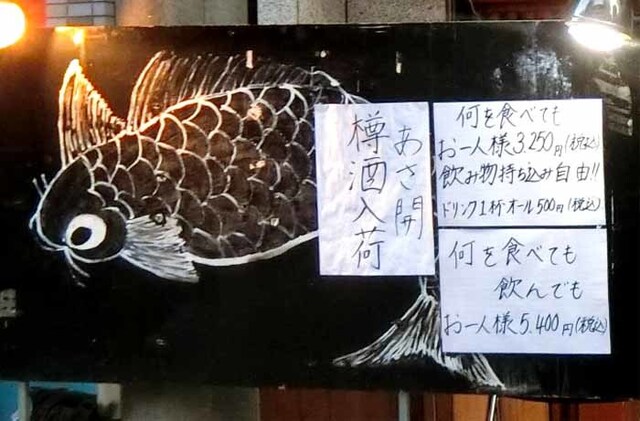 あさ開
樽酒入荷
何を食べても
お一人様3,250円(税込)
飲み物持ち込み自由!!
ドリンク1杯オール500円(税込)
何を食べても
飲んでも
お一人様5,400円(税込)